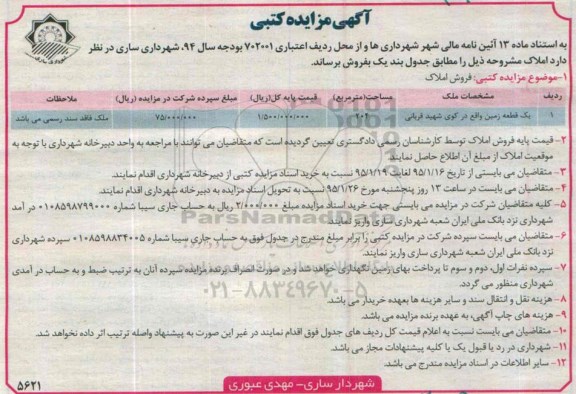 آگهی مزایده کتبی
شهرداری ساری
به استناد ماده ۱۳ آئین نامه مالی شهر شهرداری ها و از محل ردیف اعتباری ۷۰۲۰۰۱ بودجه سال ۹۴، شهرداری ساری در نظر
دارد املاک مشروحه ذیل را مطابق جدول بند یک بفروش برساند.
۱- موضوع مزایده کتبی: فروش املاک
ردیف مشخصات ملک مساحت(مترمربع) قیمت پایه کل(ریال) مبلغ سپرده شرکت در مزایده (ریال) ملاحظات
۱ یک قطعه زمین واقع در کوی شهید قربانی ۱/۵۰۰/۰۰۰/۰۰۰ ۷۵/۰۰۰/۰۰۰ ملک فاقد سند رسمی می باشد
۲- قیمت پایه فروش املاک توسط کارشناسان رسمی دادگستری تعیین گردیده است که متقاضیان می توانند با مراجعه به واحد دبیرخانه شهرداری با توجه به
موقعیت املاک از مبلغ آن اطلاع حاصل نمایند.
۳- متقاضیان می بایستی از تاریخ ۹۵/۱/۱۶ لغایت ۹۵/۱/۱۹ نسبت به خرید اسناد مزایده کتبی از دبیرخانه شهرداری اقدام نمایند.
۴- متقاضیان می بایست در ساعت ۱۳ روز پنجشنبه مورخ ۹۵/۱/۲۶ نسبت به تحویل اسناد مزایده به دبیرخانه شهرداری اقدام نمایند.
۵- کلیه متقاضیان شرکت در مزایده می بایستی جهت خرید اسناد مزایده مبلغ ۲/۰۰۰/۰۰۰ ریال به حساب جاری سیبا شماره ۰۱۰۸۵۹۸۷۹۹۰۰۰ در آمد
شهرداری نزد بانک ملی ایران شعبه شهرداری ساری واریز نمایند.
۶- متقاضیان می بایست سپرده شرکت در مزایده کتبی را برابر مبلغ مندرج در جدول فوق به حساب جاری سیبا شماره ۰۱۰۸۵۹۸۸۳۴۰۰۵ سپرده شهرداری
نزد بانک ملی ایران شعبه شهرداری ساری واریز نمایند.
۷- سپرده نفرات اول، دوم و سوم تا پرداخت بهای زمین نگهداری خواهد شد و در صورت انصراف برنده مزایده سپرده آنان به ترتیب ضبط و به حساب در آمدی
شهرداری منظور می گردد.
۸- هزینه نقل و انتقال سند و سایر هزینه ها بعهده خریدار می باشد.
۹- هزینه های چاپ آگهی، به عهده برنده مزایده می باشد.
۱۰- متقاضیان می بایست نسبت به اعلام قیمت کل ردیف های جدول فوق اقدام نمایند در غیر این صورت به پیشنهاد واصله ترتیب اثر داده نخواهد شد.
۱۱- شهرداری در رد یا قبول یک یا کلیه پیشنهادات مجاز می باشد.
۱۲- سایر اطلاعات در اسناد مزایده مندرج می باشد.
شهردار ساری- مهدی عبوری
۵۶۲۱
ParsNamadData
۰۲۱-۸۸۳۴۹۶۷۰-۵